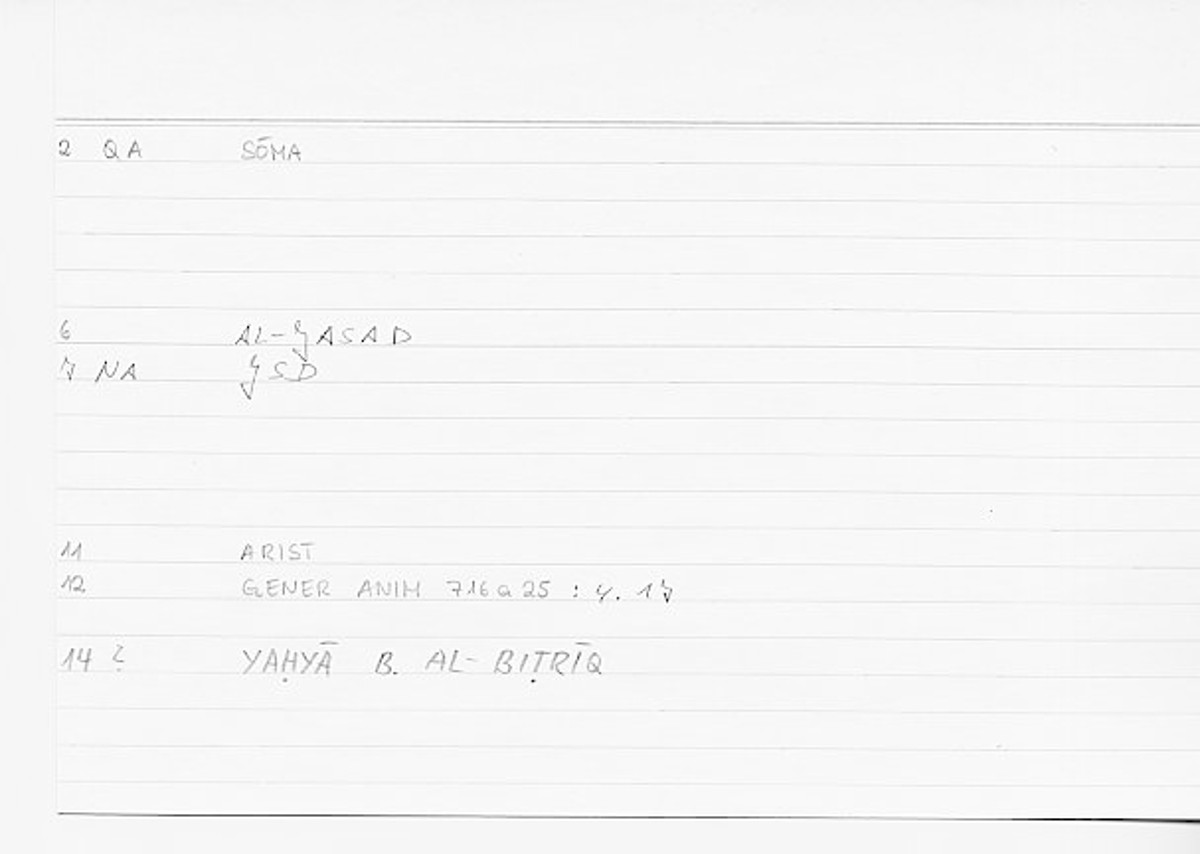 2 QA SŌMA
6 AL-ǦASAD
7 NA ǦSD
11 ARIST
12 GENER ANIM 716a25 : 4. 17
14 ? YAḤYĀ B. AL-BIṬRĪQ